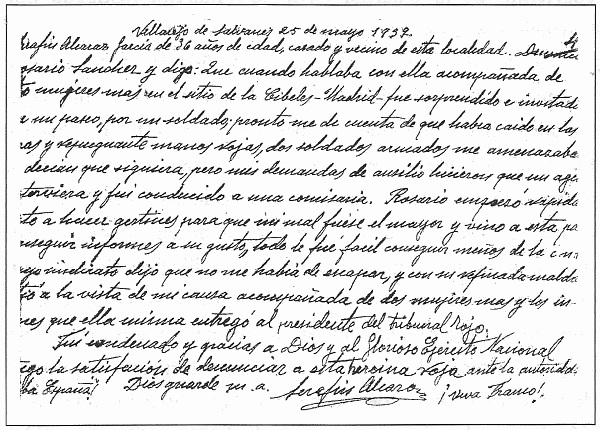 Villarejo de Salvanés 25 de mayo 1939.
rafin Alcaraz García de 36 años de edad, casado y vecino de esta localidad.
osario Sanchez y digo: Que cuando hablaba con ella acompañada de
o mujeres mas en el sitio de la Cibeles-Madrid fue sorprendido e invitado
a un paseo, por un soldado; pronto me di cuenta de que habia caido en las
ras y repugnante manos rojas, dos soldados armados me amenazaba
decian que siguiera, pero mis demandas de ausilio hicieron que un age
terviera y fui conducido a una comisaria. Rosario empezó rápida
to a hacer gestines para que mi mal fuese el mayor y vino a esta pa
nseguir informes a su gusto, todo le fué facil conseguir menos de la
yo sindicato dijo que no me habia de escapar, y con su refinada malda
tió a la vista de mi causa acompañada de dos mujeres mas y los in-
mes que ella misma entregó al presidente del tribunal rojo.
Fui condenado y gracias a Dios y al Glorioso Ejercito Nacional
ngo la satisfación de denunciar a esta heroina roja ante la autoridad.
ba España! Dios guarde m. a. Serafin Alcaraz ¡Viva Franco!